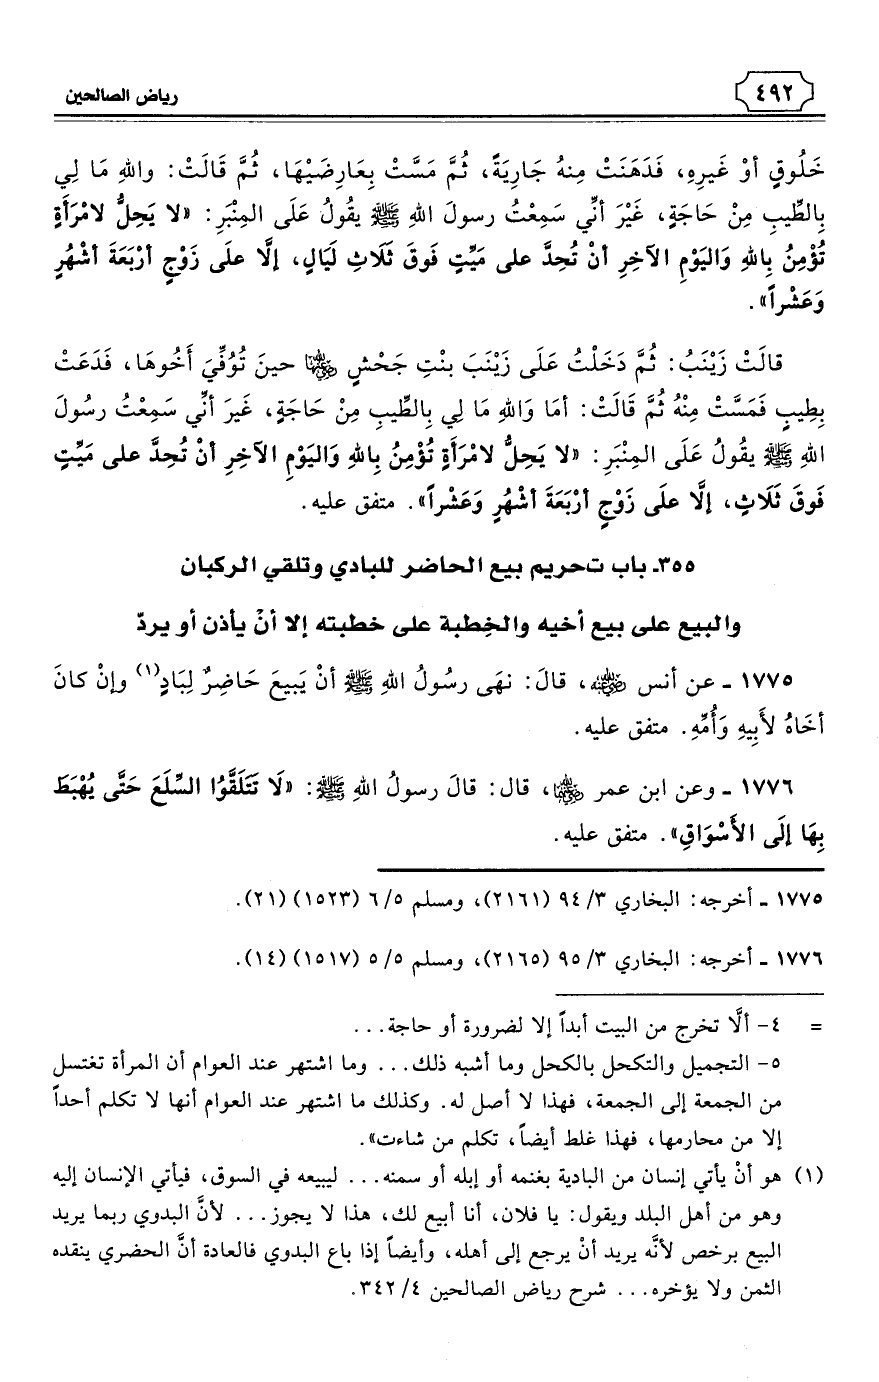 ٤٩٢
رياض الصالحين
خَلُوقٍ أوْ غَيرِهِ، فَدَهَنَتْ مِنهُ جَارِيَةً، ثُمَّ مَسَّتْ بِعَارِضَيْهَا، ثُمَّ قَالَتْ: واللهِ مَا لِي
بِالطِّيبِ مِنْ حَاجَةٍ، غَيْرَ أنِّي سَمِعْتُ رسولَ اللهِ ﷺ يقُولُ عَلَى المِنْبَرِ: «لا يَحِلُّ لامْرَأَةٍ
تُؤْمِنُ بِاللهِ وَاليَوْمِ الآخِرِ أنْ تُحِدَّ على مَيِّتٍ فَوقَ ثَلَاثِ لَيَالٍ، إلَّا علَى زَوْجٍ أرْبَعَةَ أشْهُرٍ
وَعَشْراً».
قالَتْ زَيْنَبُ: ثُمَّ دَخَلْتُ عَلَى زَيْنَبَ بنْتِ جَحْشٍ رضي الله عنها حينَ تُوُفِّيَ أَخُوهَا، فَدَعَتْ
بِطِيبٍ فَمَسَّتْ مِنْهُ ثُمَّ قَالَتْ: أمَا وَاللهِ مَا لِي بِالطِّيبِ مِنْ حَاجَةٍ، غَيرَ أنِّي سَمِعْتُ رسُولَ
اللهِ ﷺ يقُولُ عَلَى المِنْبَرِ: «لا يَحِلُّ لامْرَأَةٍ تُؤْمِنُ بِاللهِ وَاليَوْمِ الآخِرِ أنْ تُحِدَّ على مَيِّتٍ
فَوقَ ثَلَاثٍ، إلَّا علَى زَوْجٍ أرْبَعَةَ أشْهُرٍ وَعَشْراً». متفق عليه.
٣٥٥ـ باب تحريم بيع الحاضر للبادي وتلقي الركبان
والبيع على بيع أخيه والخِطبة على خطبته إلا أنْ يأذن أو يردّ
١٧٧٥ ـ عن أنس رضي الله عنه، قالَ: نهَى رسُولُ اللهِ ﷺ أنْ يَبيعَ حَاضِرٌ لِبَادٍ(١) وإنْ كانَ
أخَاهُ لأَبِيهِ وَأُمِّهِ. متفق عليه.
١٧٧٦ ـ وعن ابن عمر رضي الله عنهما، قال: قالَ رسولُ اللهِ ﷺ: «لَا تَتَلَقَّوُا السِّلَعَ حَتَّى يُهْبَطَ
بِهَا إلَى الأَسْوَاقِ». متفق عليه.
١٧٧٥ ـ أخرجه: البخاري ٣/ ٩٤ (٢١٦١)، ومسلم ٥/ ٦ (١٥٢٣) (٢١).
١٧٧٦ ـ أخرجه: البخاري ٣/ ٩٥ (٢١٦٥)، ومسلم ٥/ ٥ (١٥١٧) (١٤).
= ٤- ألَّا تخرج من البيت أبداً إلا لضرورة أو حاجة...
٥- التجميل والتكحل بالكحل وما أشبه ذلك... وما اشتهر عند العوام أن المرأة تغتسل
من الجمعة إلى الجمعة، فهذا لا أصل له. وكذلك ما اشتهر عند العوام أنها لا تكلم أحداً
إلا من محارمها، فهذا غلط أيضاً، تكلم من شاءت».
(١) هو أنْ يأتي إنسان من البادية بغنمه أو إبله أو سمنه... ليبيعه في السوق، فيأتي الإنسان إليه
وهو من أهل البلد ويقول: يا فلان، أنا أبيع لك، هذا لا يجوز... لأنَّ البدوي ربما يريد
البيع برخص لأنَّه يريد أنْ يرجع إلى أهله، وأيضاً إذا باع البدوي فالعادة أنَّ الحضري ينقده
الثمن ولا يؤخره... شرح رياض الصالحين ٤/ ٣٤٢.